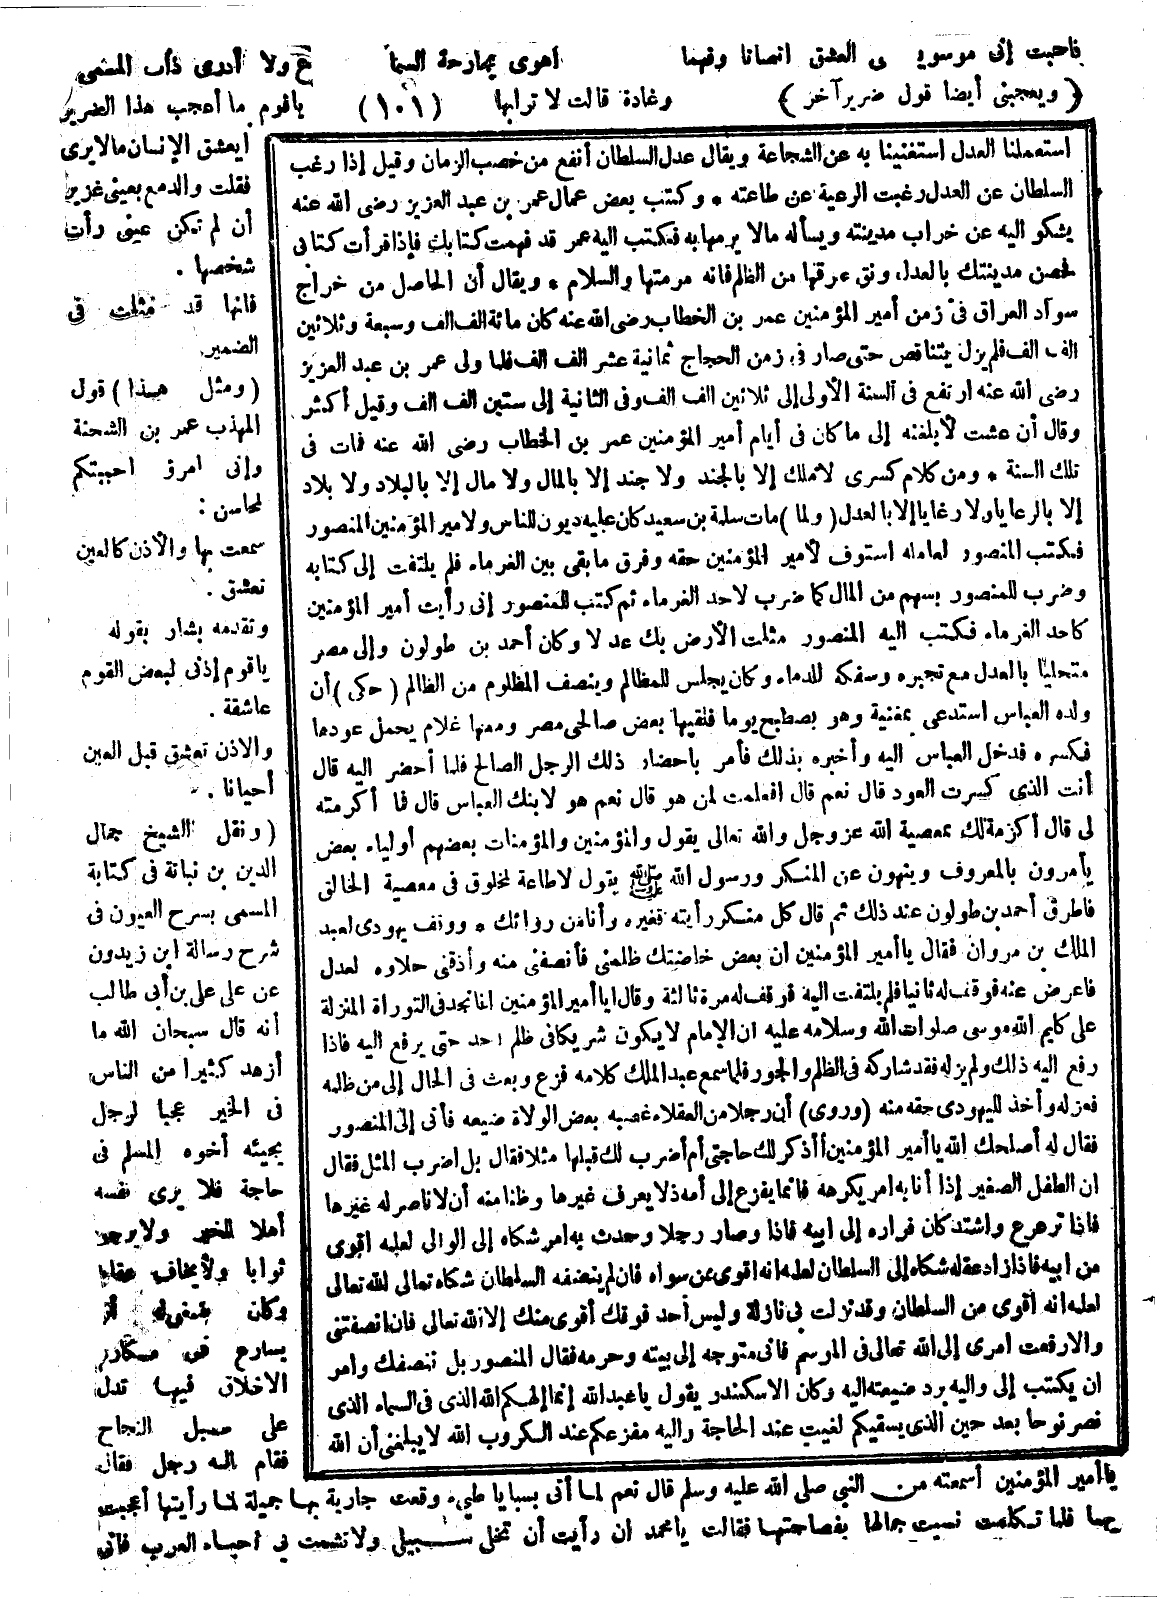 فاحبت إنى موسويّ ى العشق انصانا وفهما اهوى بجارحة السما ع ولا أدرى ذأب المسمى
﴿ ويعجبنى أيضا قول ضرير آخر ﴾ وغادة قالت لا ترابها (١٠١) ياقوم ما أعجب هذا الضرير
استعملنا العدل استغنينا به عن الشجاعة ويقال عدل السلطان أنفع من خصب الزمان وقيل إذا رغب
السلطان عن العدل رغبت الرعية عن طاعته * وكتب بعض عمال عمر بن عبد العزيز رضى الله عنه
يشكو اليه عن خراب مدينته ويسأله مالا يرمها به فكتب اليه عمر قد فهمت كتابك فإذا قرأت كتابى
فحصن مدينتك بالعدل ونق عرقها من الظلم فانه مرمتها والسلام * ويقال أن الحاصل من خراج
سواد العراق فى زمن أمير المؤمنين عمر بن الخطاب رضى الله عنه كان مائة الف الف وسبعة وثلاثين
الف الف فلم يزل يتناقص حتى صار فى زمن الحجاج ثمانية عشر الف الف فلما ولى عمر بن عبد العزيز
رضى الله عنه ارتفع فى السنة الأولى إلى ثلاثين الف الف وفى الثانية إلى ستين الف الف وقيل أكثر
وقال أن عشت لأبلغنه إلى ما كان فى أيام أمير المؤمنين عمر بن الخطاب رضى الله عنه فات فى
تلك السنة * ومن كلام كسرى لا ملك إلا بالجند ولا جند إلا بالمال ولا مال إلا بالبلاد ولا بلاد
إلا بالرعايا ولا رعايا إلا بالعدل (ولما) مات سلمة بن سعيد كان عليه ديون للناس ولامير المؤمنين المنصور
فكتب المنصور لعامله استوف لأمير المؤمنين حقه وفرق ما بقى بين الغرماء فلم يلتفت إلى كتابه
وضرب للمنصور بسهم من المال كما ضرب لاحد الغرماء ثم كتب للمنصور إنى رأيت أمير المؤمنين
كاحد الغرماء فكتب اليه المنصور مثلت الأرض بك عدلا وكان أحمد بن طولون والى مصر
متحليا بالعدل مع تجبره وسفكه للدماء وكان يجلس للمظالم وينصف المظلوم من الظالم (حكى) أن
ولده العباس استدعى بمغنية وهو يصطبح يوما فلقيها بعض صالحى مصر ومعها غلام يحمل عودها
فكسره فدخل العباس اليه وأخبره بذلك فأمر باحضار ذلك الرجل الصالح فلما أحضر اليه قال
أنت الذى كسرت العود قال نعم قال افعلمت لمن هو قال نعم هو لابنك العباس قال فما أكرمته
لى قال أكرمة لك بمعصية الله عز وجل والله تعالى يقول والمؤمنين والمؤمنات بعضهم أولياء بعض
يأمرون بالمعروف وينهون عن المنكر ورسول الله ﷺ يقول لا طاعة لمخلوق فى معصية الخالق
فاطرق أحمد بن طولون عند ذلك ثم قال كل منكر رأيته تغيره وأنا من روائك * ووقف يهودى لعبد
الملك بن مروان فقال يا أمير المؤمنين ان بعض خاضتك ظلمنى فأنصفنى منه وأذقنى حلاوه لعدل
فاعرض عنه فوقف له ثانيا فلم يلتفت اليه فوقف له مرة ثالثة وقال ايا أمير المؤمنين انا نجد فى التوراة المنزلة
على كليم الله موسى صلوات الله وسلامه عليه ان الإمام لا يكون شريكا فى ظلم احد حتى يرفع اليه فاذا
رفع اليه ذلك ولم يزله فقد شاركه فى الظلم والجور فلما سمع عبد الملك كلامه فزع وبعث فى الحال إلى من ظلمه
فعزله وأخذ لليهودى حقه منه (وروى) أن رجلا من العقلاء غصبه بعض الولاة ضيعه فأتى إلى المنصور
فقال له أصلحك الله يا أمير المؤمنين أأذكر لك حاجتى أم أضرب لك قبلها مثلا فقال بل اضرب المثل فقال
ان الطفل الصغير إذا أنابه امر يكرهة فانما يفزع إلى أمه ذ لا يعرف غيرها وظنا منه أن لا ناصر له غيرها
فاذا ترعرع واشتد كان فراره إلى ابيه فاذا وصار رجلا وحدث به امر شكاه إلى الوالى لعله اقوى
من ابيه فاذا زاد عقله شكاه إلى السلطان لعلمه انه اقوى من سواه فان لم ينصفه السلطان شكاه تعالى لله تعالى
لعلمه انه أقوى من السلطان وقد نزلت بى نازلة وليس أحد فوقك أقوى منك إلا الله تعالى فان انصفتنى
والا رفعت امرى إلى الله تعالى فى الموسم فانى متوجه إلى بيته وحرمه فقال المنصور بل ننصفك وامر
ان يكتب إلى واليه برد ضيعته اليه وكان الاسكندر يقول يا عبد الله إنما إلهكم الله الذى فى السماء الذى
نصر نوحا بعد حين الذى يسقيكم لغيث عند الحاجة واليه مفزعكم عند الكروب الله لا يبلغنى أن الله
ايعشق الإنسان ما لا يرى
فقلت والدمع بعينى غزير
أن لم تكن عينى رأت
شخصها .
فانها قد مثلت فى
الضمير
(ومثل هذا) قول
المهذب عمر بن الشحنة
وإنى امرؤ احببتكم
لمحاسن :
سمعت بها والأذن كالعين
تعشق .
وتقدمه بشار بقوله
ياقوم إذنى لبعض القوم
عاشقة .
والاذن تعشق قبل العين
أحيانا .
(ونقل الشيخ جمال
الدين بن نباتة فى كتابة
المسمى بسرح العيون فى
شرح رسالة ابن زيدون
عن على على بن أبى طالب
أنه قال سبحان الله ما
أزهد كثيرا من الناس
فى الخير عجبا لرجل
يجيئه أخوه المسلم فى
حاجة فلا يرى نفسه
أهلا للخير ولا يرجو
ثوابا ولا يخاف عقابا
وكان ينبغى له أن
يسارع فى مكارم
الاخلاق فيها تدل
على سبيل النجاح
فقام اليه رجل فقال
يا أمير المؤمنين أسمعته من النبى صلى الله عليه وسلم قال نعم لما أتى بسبايا طيء وقعت جارية بها جميلة لما رأيتها أعجبت
بها فلما تكلمت نسيت جمالها بفصاحتها فقالت يا محمد ان رأيت أن تخلى سبيلى ولا تشمت بى احياء العرب فانى